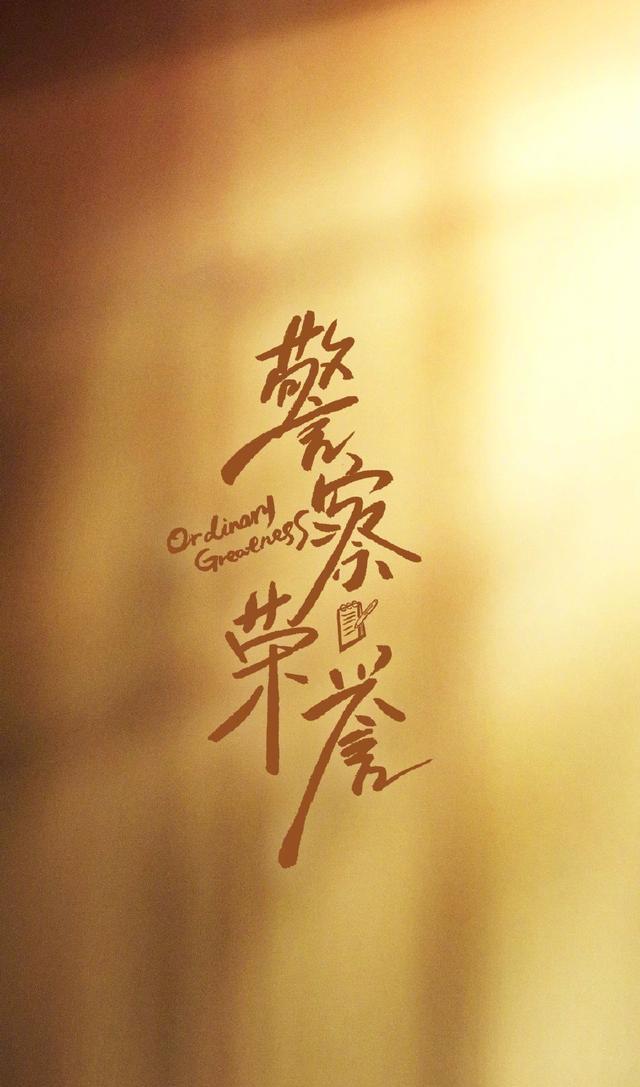 警察
荣誉
Ordinary
Greatness